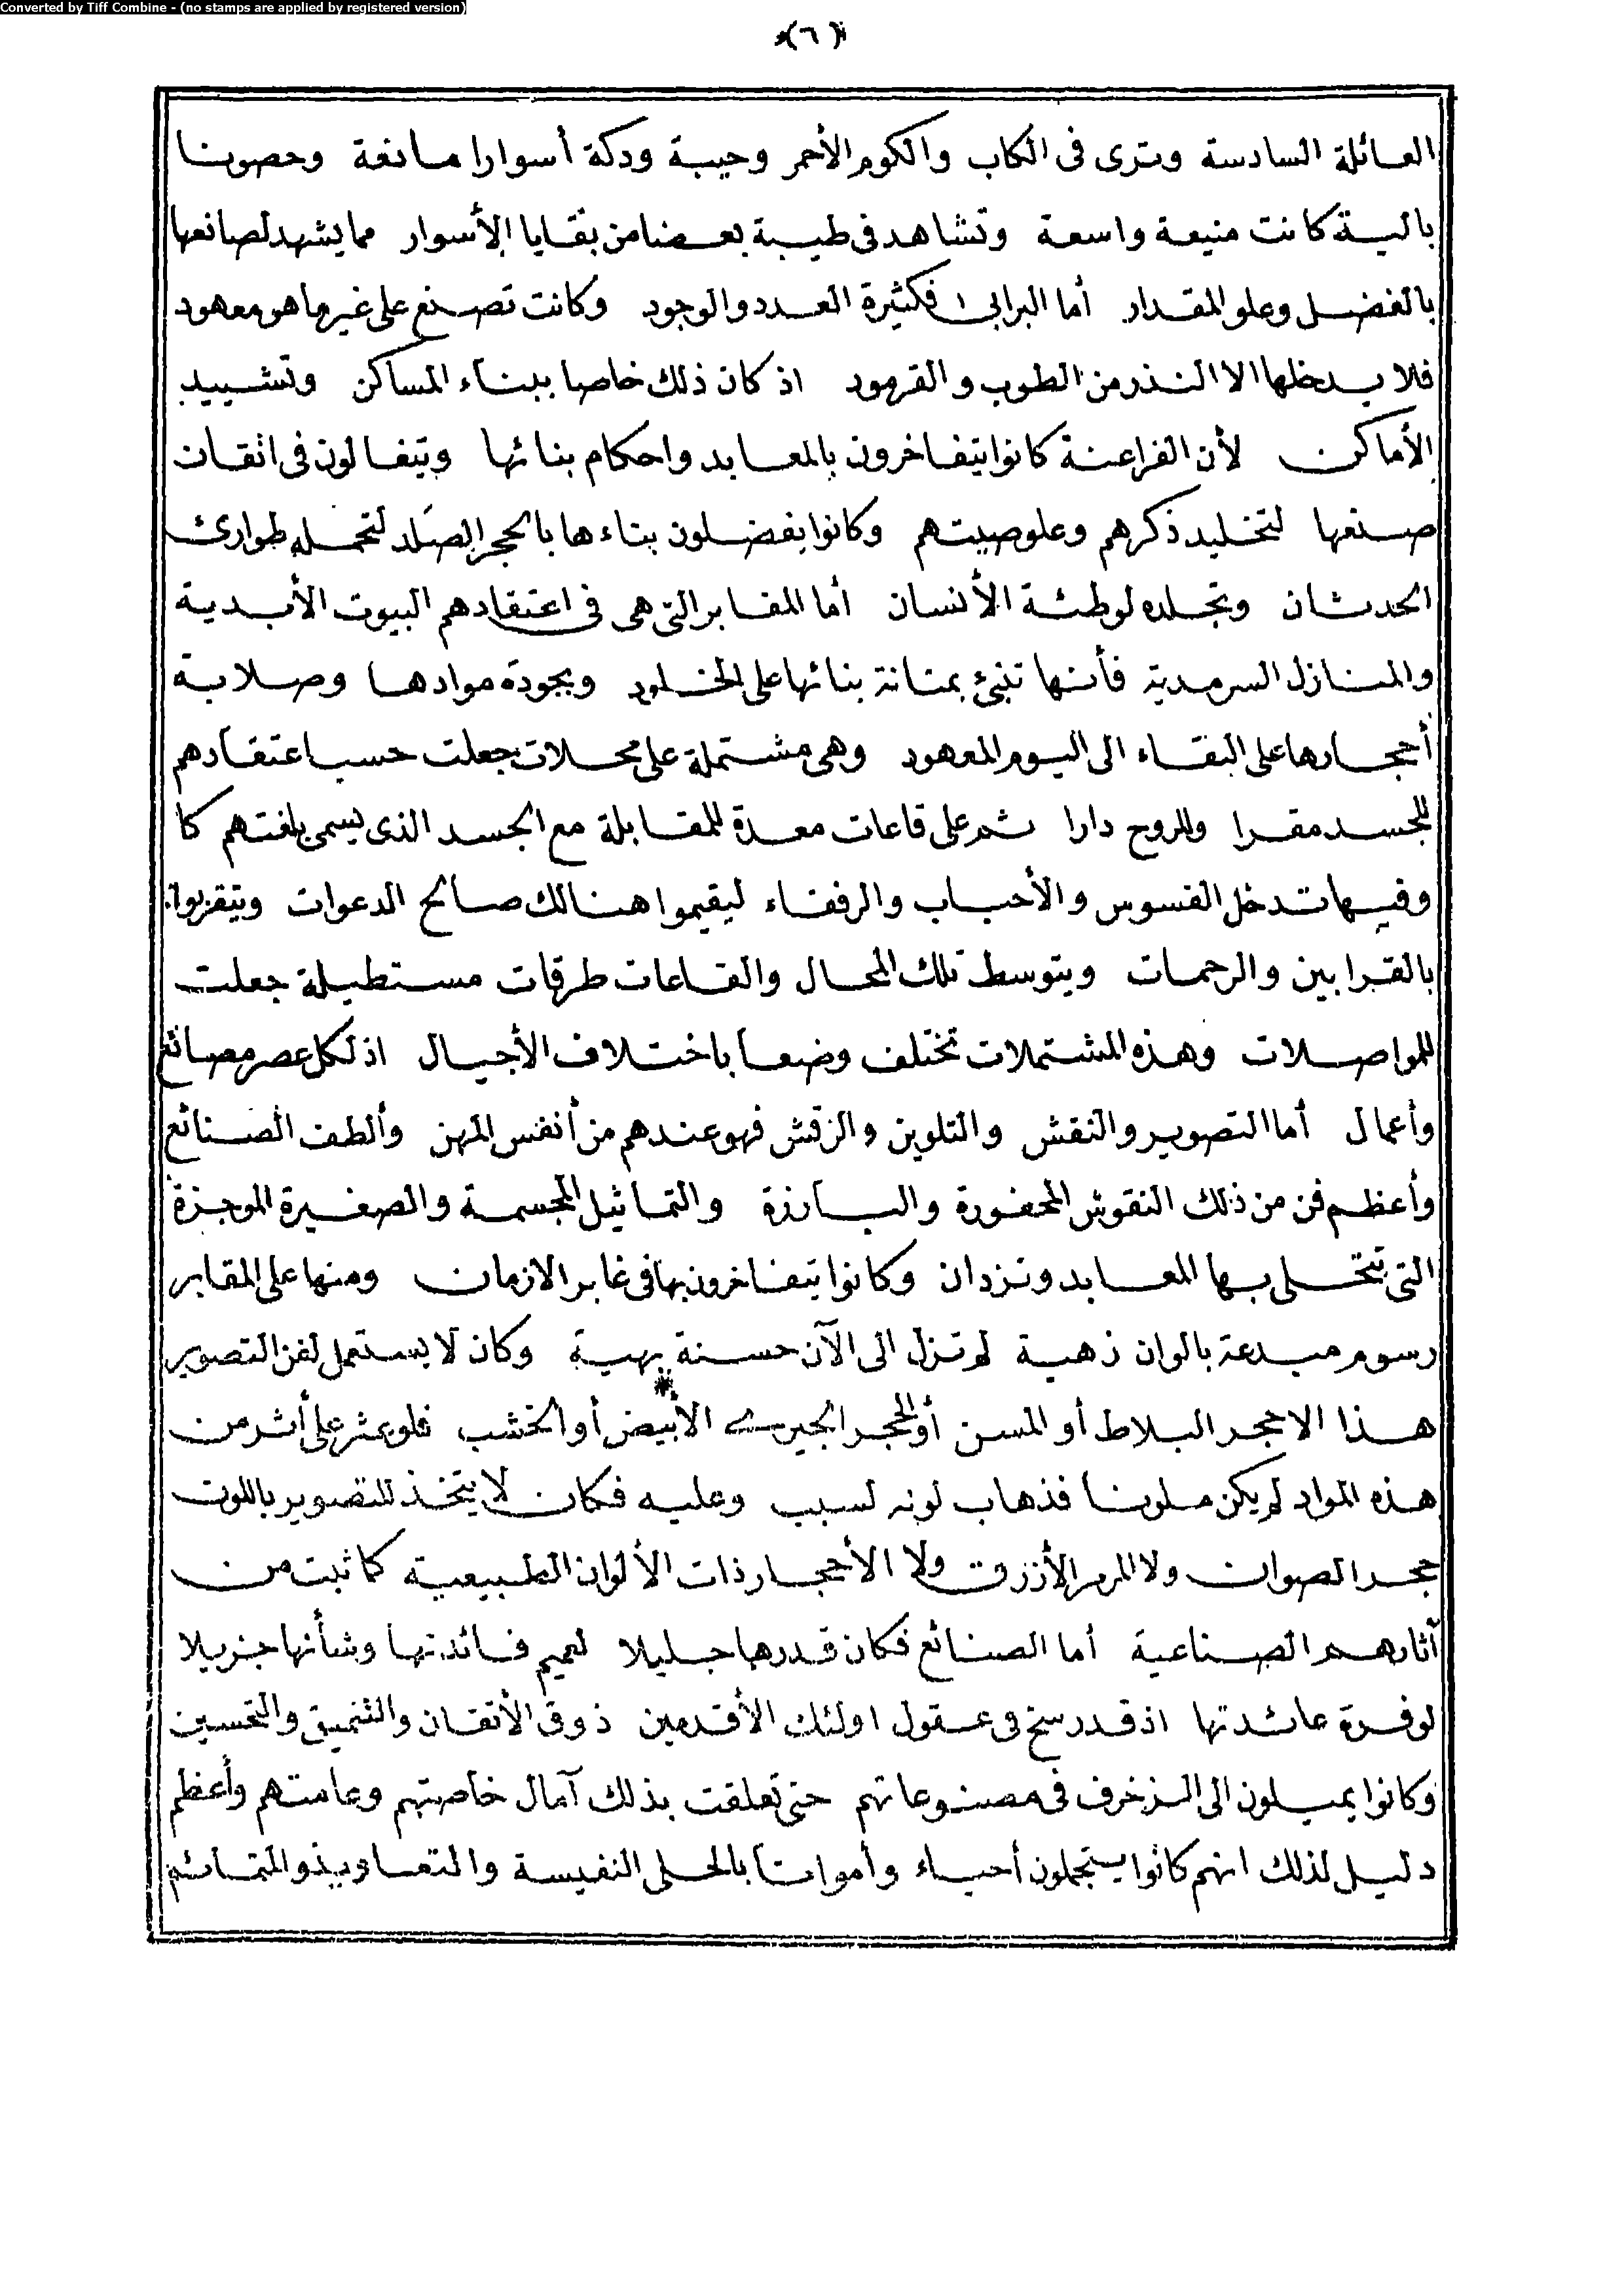 Converted by Tiff Combine - (no stamps are applied by registered version)
(٦)
العائلة السادسة وترى فى الكاب والكوم الأحمر وحيبة ودكة أسوارا مانعة وحصونا
بالية كانت منيعة واسعة وتشاهد فى طيبة بعضا من بقايا الأسوار مما يشهد لصانعها
بالفضل وعلو المقدار أما البرابى ١ فكثيرة العدد والوجود وكانت تصنع على غير ما هو معهود
فلا يدخلها الا النذر من الطوب والقرمود اذ كان ذلك خاصا ببناء المساكن وتشييد
الأماكن لأن الفراعنة كانوا يتفاخرون بالمعابد واحكام بنائها ويتغالون فى اتقان
صنعها لتخليد ذكرهم وعلو صيتهم وكانوا يفضلون بناءها بالحجر الصَلد لتحمله طوارئ
الحدثان وتجلده لوطئة الأنسان أما المقابر التى هى فى اعتقادهم البيوت الأبدية
والمنازل السرمدية فأنها تنبئ بمتانة بنائها على الخلود وبجودة موادها وصلابة
أحجارها على البقاء الى اليوم المعهود وهى مشتملة على محلات جعلت حسب اعتقادهم
للجسد مقرا وللروح دارا ثم على قاعات معدة للمقابلة مع الجسد الذى يسمى بلغتهم كا
وفيها تدخل القسوس والأحباب والرفقاء ليقيموا هنالك صالح الدعوات ويتقربوا
بالقرابين والرحمات ويتوسط تلك المحال والقاعات طرقات مستطيلة جعلت
للمواصلات وهذه المشتملات تختلف وضعا باختلاف الأجيال اذ لكل عصر مصانع
وأعمال أما التصوير والنقش والتلوين والزقش فهو عندهم من أنفس المهن وألطف الصنائع
وأعظم فن من ذلك النقوش المحفورة والبارزة والتماثيل المجسمة والصغيرة الموجزة
التى تتحلى بها المعابد وتزدان وكانوا يتفاخرون بها فى غابر الازمان ومنها على المقابر
رسوم مبدعة بالوان ذهبية لم تزل الى الآن حسنة بهية وكان لا يستعمل لفن التصوير
هذا الا حجر البلاط أو المسن أو الحجر الجيرى الأبيض أو الخشب فلو عثر على أثر من
هذه المواد لم يكن ملونا فذهاب لونه لسبب وعليه فكان لا يتخذ للتصوير باللون
حجر الصوان ولا المرمر الأزرق ولا الأحجار ذات الألوان الطبيعية كما ثبت من
آثارهم الصناعية أما الصنائع فكان قدرها جليلا لعميم فائدتها وشأنها جزيلا
لوفرة عائدتها اذ قد رسخ فى عقول اولئك الأقدمين ذوق الأتقان والتنميق والتحسين
وكانوا يميلون الى الزخرف فى مصنوعاتهم حتى تعلقت بذلك آمال خاصتهم وعامتهم وأعظم
دليل لذلك انهم كانوا يتجملون أحياء وأمواتا بالحلى النفيسة والتعاويذ والتمائم